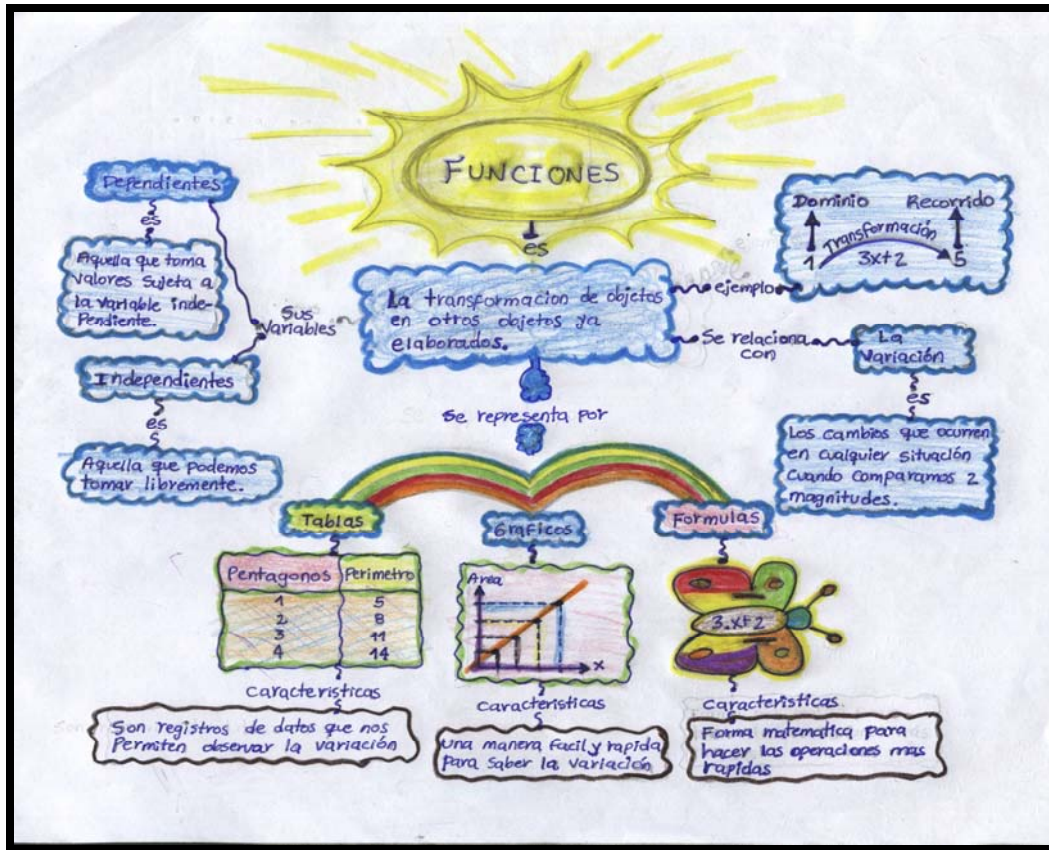 FUNCIONES
es
La transformacion de objetos
en otros objetos ya
elaborados.
Sus
Variables
Dependientes
es
Aquella que toma
valores sujeta a
la variable inde-
pendiente.
Independientes
es
Aquella que podemos
tomar libremente.
ejemplo
Dominio Recorrido
Transformación
1 3x+2 5
Se relaciona
con
La
Variación
es
Los cambios que ocurren
en cualquier situación
cuando comparamos 2
magnitudes.
Se representa por
Tablas
Pentagonos Perimetro
1 5
2 8
3 11
4 14
Caracteristicas
Son registros de datos que nos
Permiten observar la variación
Graficos
Area
x
Caracteristicas
una manera facil y rapida
para saber la variación
Formulas
3.x+2
caracteristicas
Forma matematica para
hacer las operaciones mas
rapidas